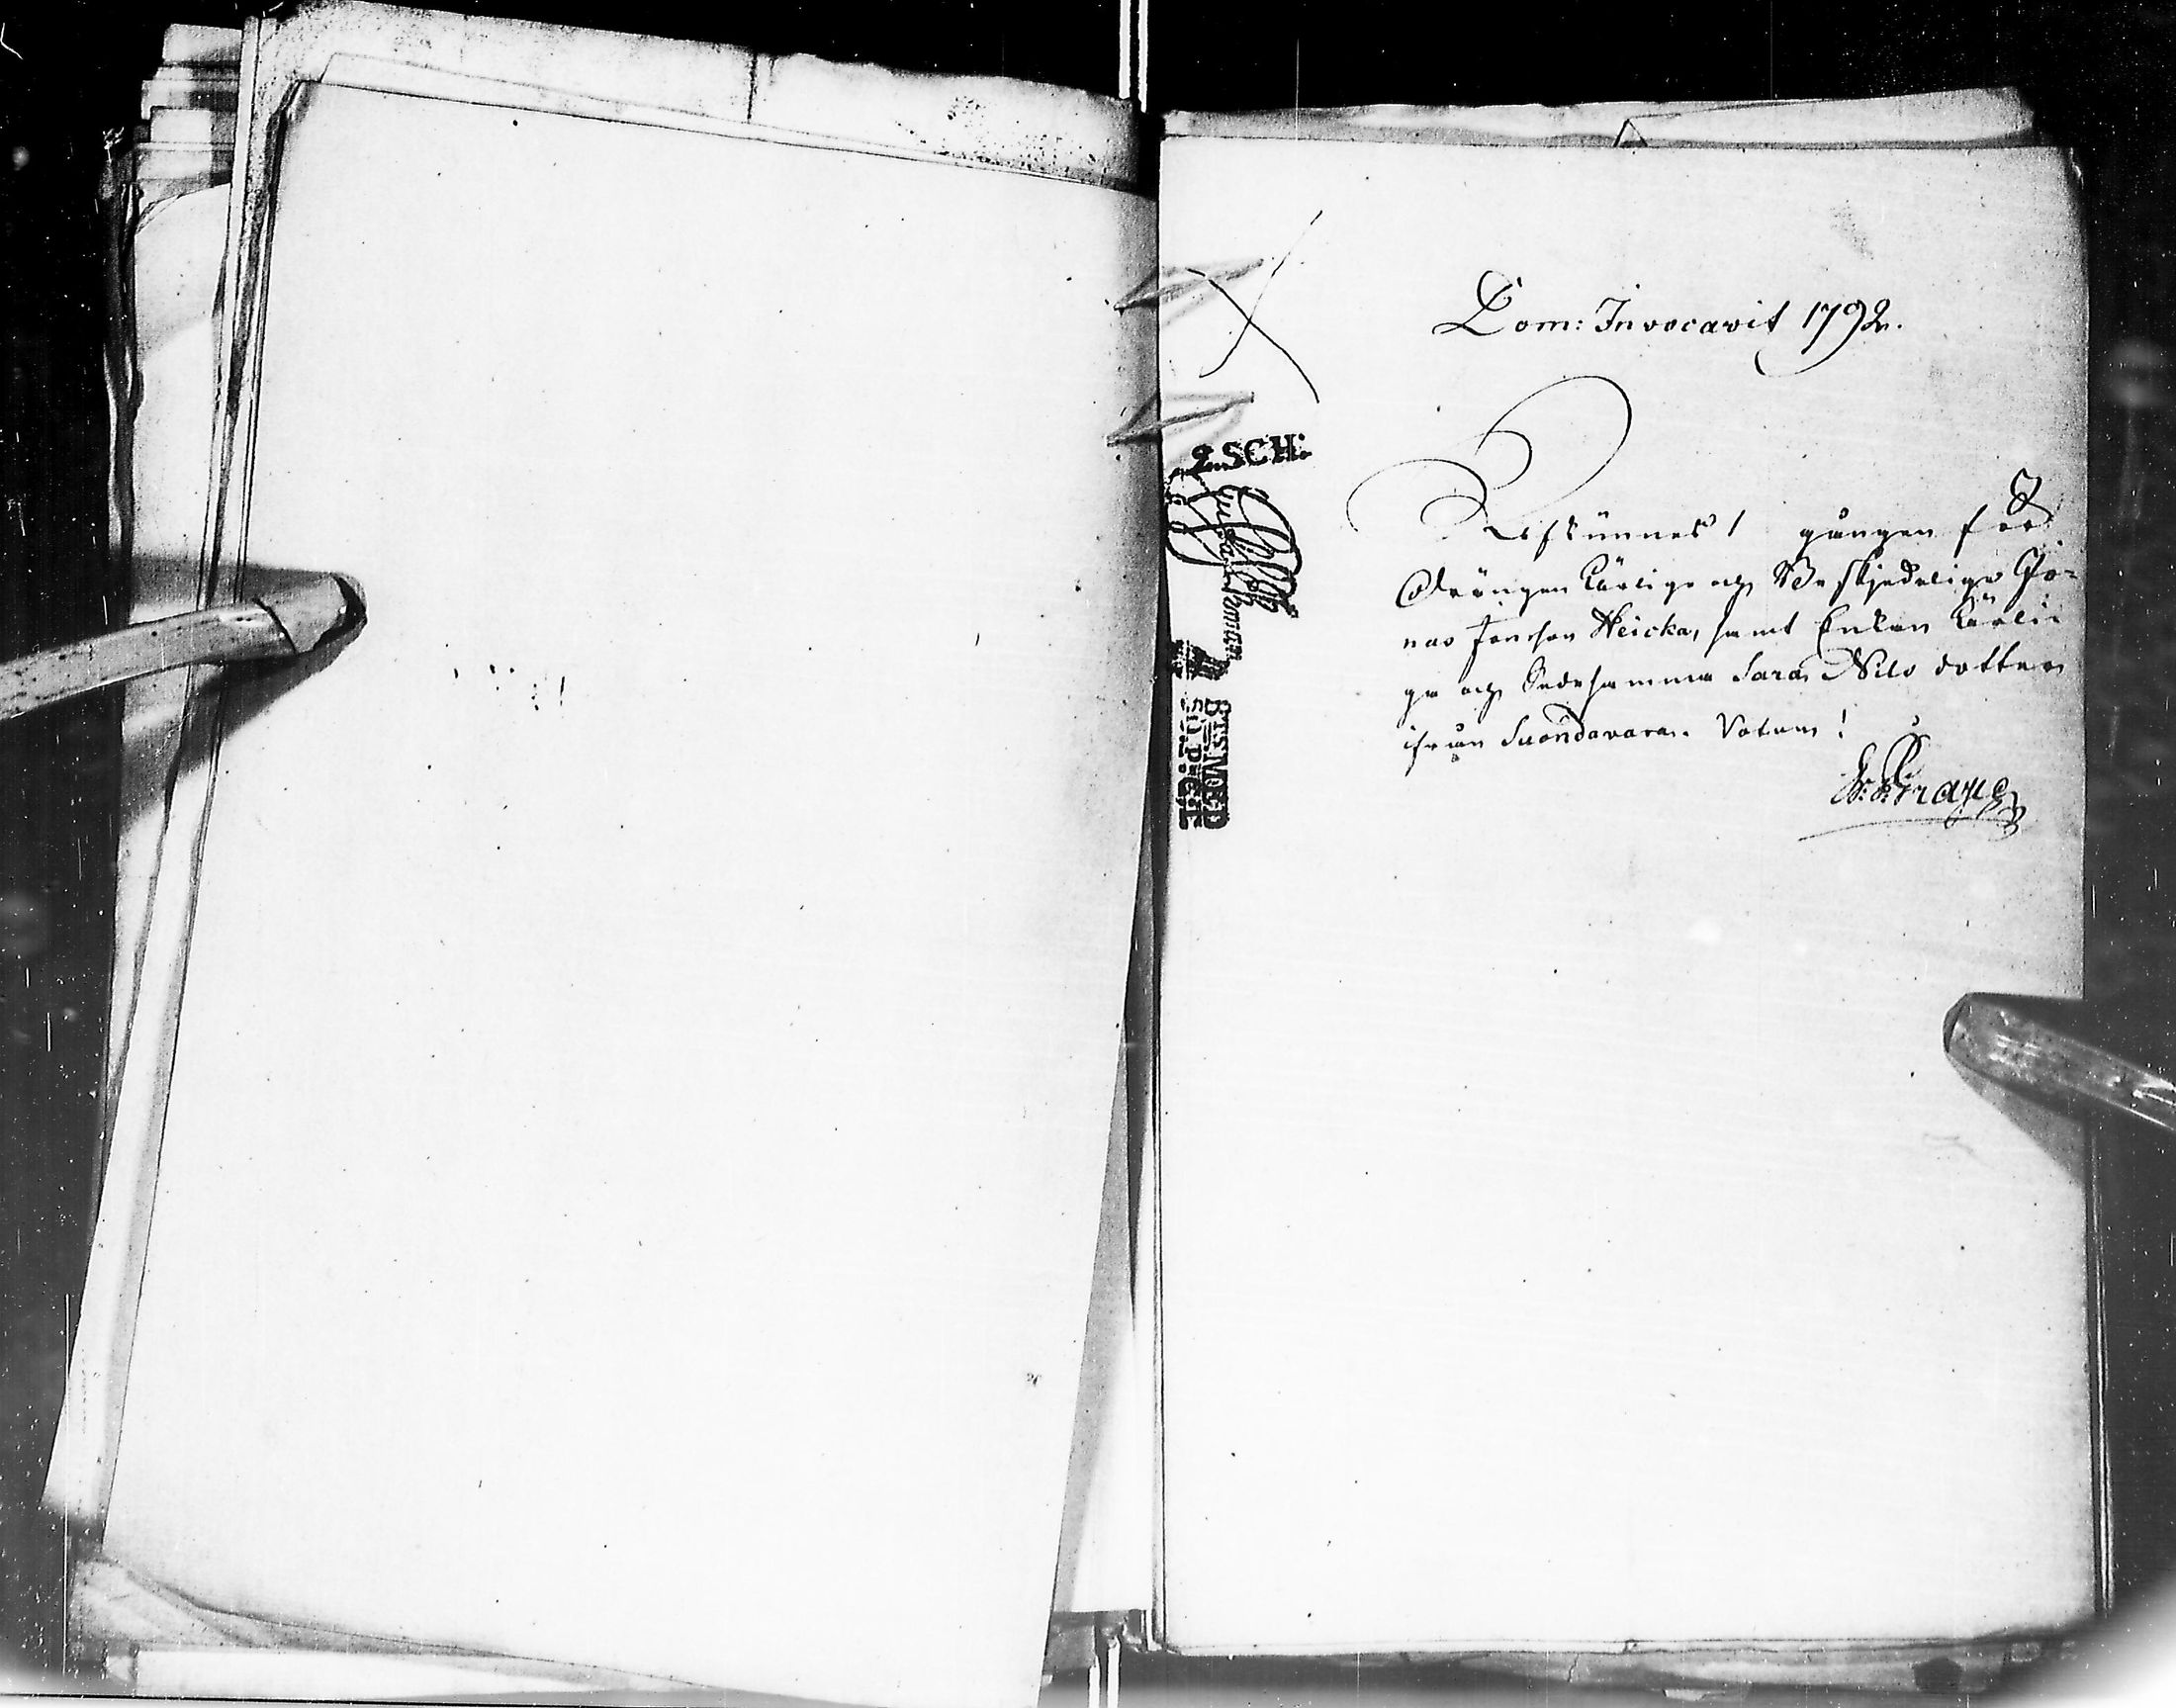 Dom: Invocavit 1792.
Afkunnes 1 gången för
Drängen ärlige och Beskjedelige Jo-
nas Jonson Heicka, samt Enkan ärli-
ga och Sedesamma Sara Nils dotter
ifrån Suondavara. Votum!
2 SCH:
BESMDED